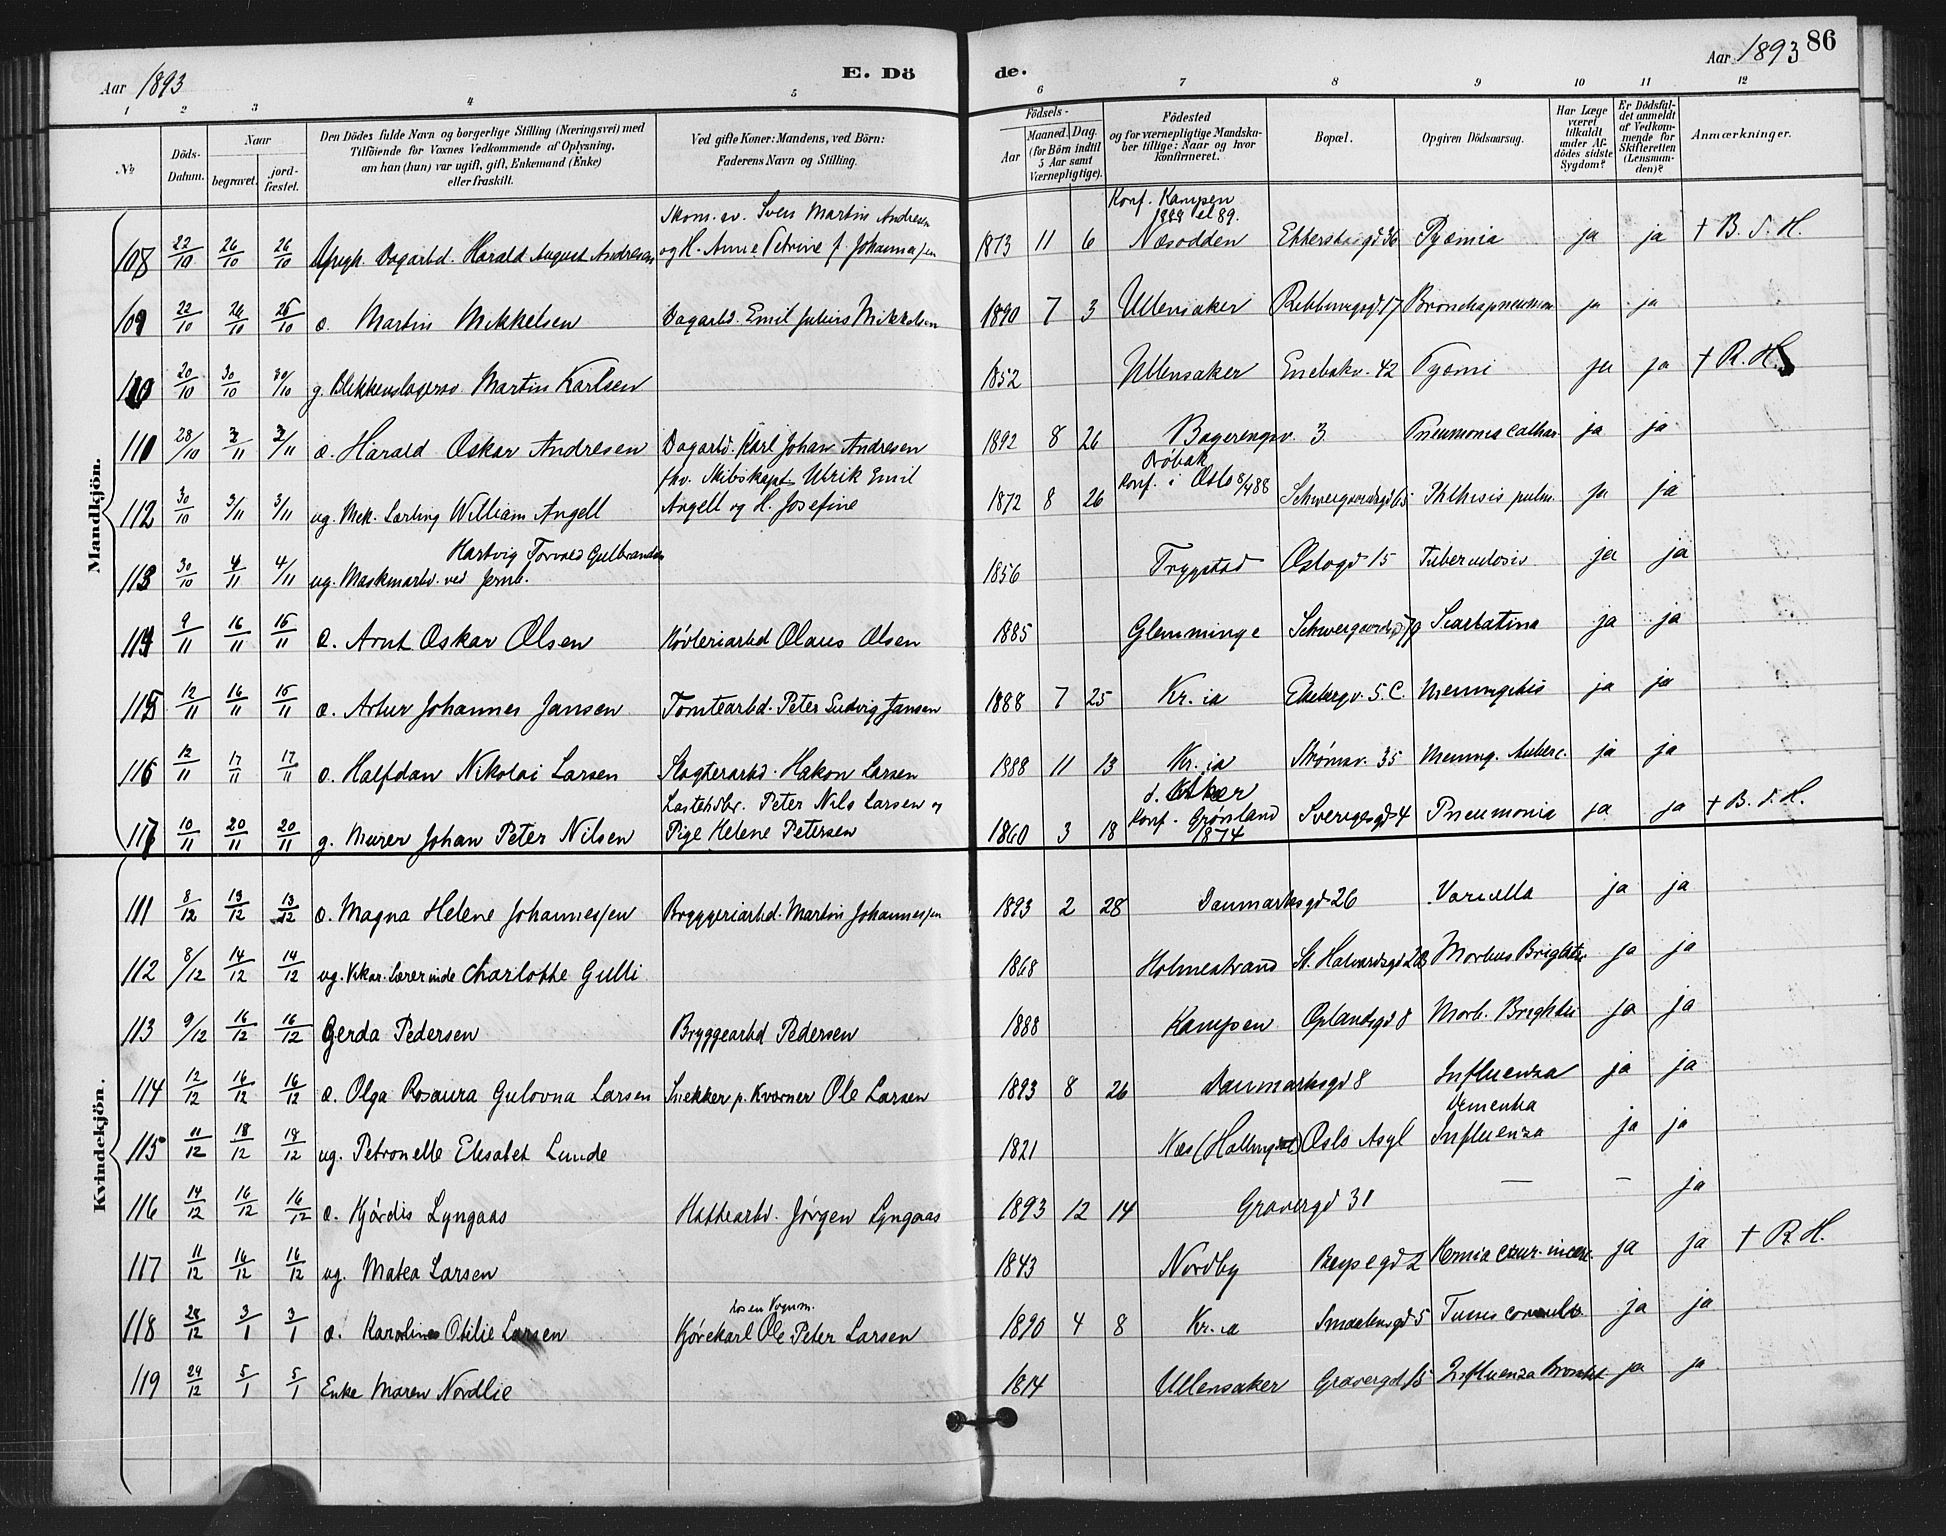 Aar 1893
E. Dö
de.
Aar 1893
86
1 2 3 4 5 6 7 8 9 10 11 12
No
Döds-Datum.
Naar
begravet.
jord-fæstet.
Den Dödes fulde Navn og borgerlige Stilling (Næringsvei) med
Tilföiende for Voxnes Vedkommende af Oplysning,
om han (hun) var ugift, gift, Enkemand (Enke)
eller fraskilt.
Ved gifte Koner: Mandens, ved Börn:
Faderens Navn og Stilling.
Födsels-
Aar
Maaned. Dag.
(for Börn indtil
5 Aar samt
Værnepligtige).
Födested
og for værnepligtige Mandska-
ber tillige: Naar og hvor
konfirmeret.
Bopæl.
Opgiven Dödsaarsag.
Har Læge
været
tilkaldt
under Af-
dödes sidste
Sygdom?
Er Dödsfal-
det anmeldt
af Vedkom-
mende for
Skifteretten
(Lensman-
den)?
Anmærkninger.
Mandkjön.
Skom. sv. Sven Martin Andresen Konf. Kampen
1888 el 89.
108 22/10 26/10 26/10 Dagarbd. Harald August Andresen og H. Anne Petrine f. Johannasen 1873 11 6 Næsodden 36 Pyæmia ja ja + B. S. H.
109 22/10 26/10 26/10 o. Martin Mikkelsen Dagarbd. Emil Julius Mikkelsen 1890 7 3 Ullensaker 17 Bronchopneumon ja ja
110 20/10 30/10 30/10 g. Blikkenslagersv Martin Karlsen 1852 Ullensaker Enebakv. 42 Pyæmi ja ja + R. H.
110 28/10 2/11 2/11 o. Harald Oskar Andresen Dagarbd. Karl Johan Andresen 1892 8 26 Bagerengsv. 3 Pneumonia cathar. ja ja
fhv. Skibskapt. Ulrik Emil Drøbak
Konf. i Oslo 8/4 88
112 30/10 3/11 3/11 ug. Mek. Lærling William Angell Angell og H. Josefine 1872 8 26 Schweigaardsgd 65 Phthisis pulm. ja ja
Hartvig Torvald Gulbrandsen
113 30/10 4/11 4/11 ug. Maskinarbd. ved Jernb. 1856 Trygstad Oslogd 15 Tuberculosis ja ja
114 9/11 16/11 16/11 o. Arnt Oskar Olsen Høvleriarbd Olaus Olsen 1885 Glemminge Schweigaardsgd 79 Scarlatina ja ja
115 12/11 16/11 16/11 o. Artur Johannes Jansen Tomtearbd. Peter Ludvig Jansen 1888 7 25 Kr.ia Ekebergv. 5.C. Meningitis ja ja
116 12/11 17/11 17/11 o. Halfdan Nikolai Larsen Slagterarbd. Hakon Larsen 1888 11 13 Kr.ia Strømsv. 35 Mening. tuberc. ja ja
Peter Nils Larsen og
Konf. Grønland
1874
117 10/11 20/11 20/11 g. Murer Johan Peter Nilsen Pige Helene Petersen 1860 3 18 Sverigesgd 4 Pneumonia ja ja + B. S. H.
Kvindekjön.
111 8/12 13/12 13/12 o. Magna Helene Johannessen Bryggeriarbd. Martin Johannessen 1893 2 28 Danmarksgd 26 Varicella ja ja
112 8/12 14/12 14/12 ug. Vikar. lærerinde Charlotte Gulli 1868 Holmestrand St. Halvardsgd Morbus Brightii ja ja
113 9/12 16/12 16/12 Gerda Pedersen Bryggearbd Pedersen 1888 Kampen Oplandsgd 8 Morb. Brightii ja ja
114 12/12 16/12 16/12 o. Olga Rosaura Gulovna Larsen Snekker p. Kværner Ole Larsen 1893 8 26 Danmarksgd 8 Influenza ja ja
Dementia
115 11/12 18/12 18/12 ug. Petronelle Elisabet Lunde 1821 Næs (Hallingdal) Oslo Asyl Influenza ja ja
116 14/12 16/12 16/12 o. Hjørdis Lyngaas Hattearbd. Jørgen Lyngaas 1893 12 14 Gravergd 31 — — ja
117 11/12 16/12 16/12 ug. Matea Larsen 1843 Nordby 2 Hernia crur. incarc. ja ja + R. H.
hos en Vognm.
118 28/12 3/1 3/1 o. Karoline Otilie Larsen Kjørekarl Ole Peter Larsen 1890 4 8 Kr.ia Smaalensgd 5 Tussis convuls. ja ja
119 29/12 5/1 5/1 Enke Maren Nordlie 1814 Ullensaker Gravergd 15 Influenza Bronchit ja ja